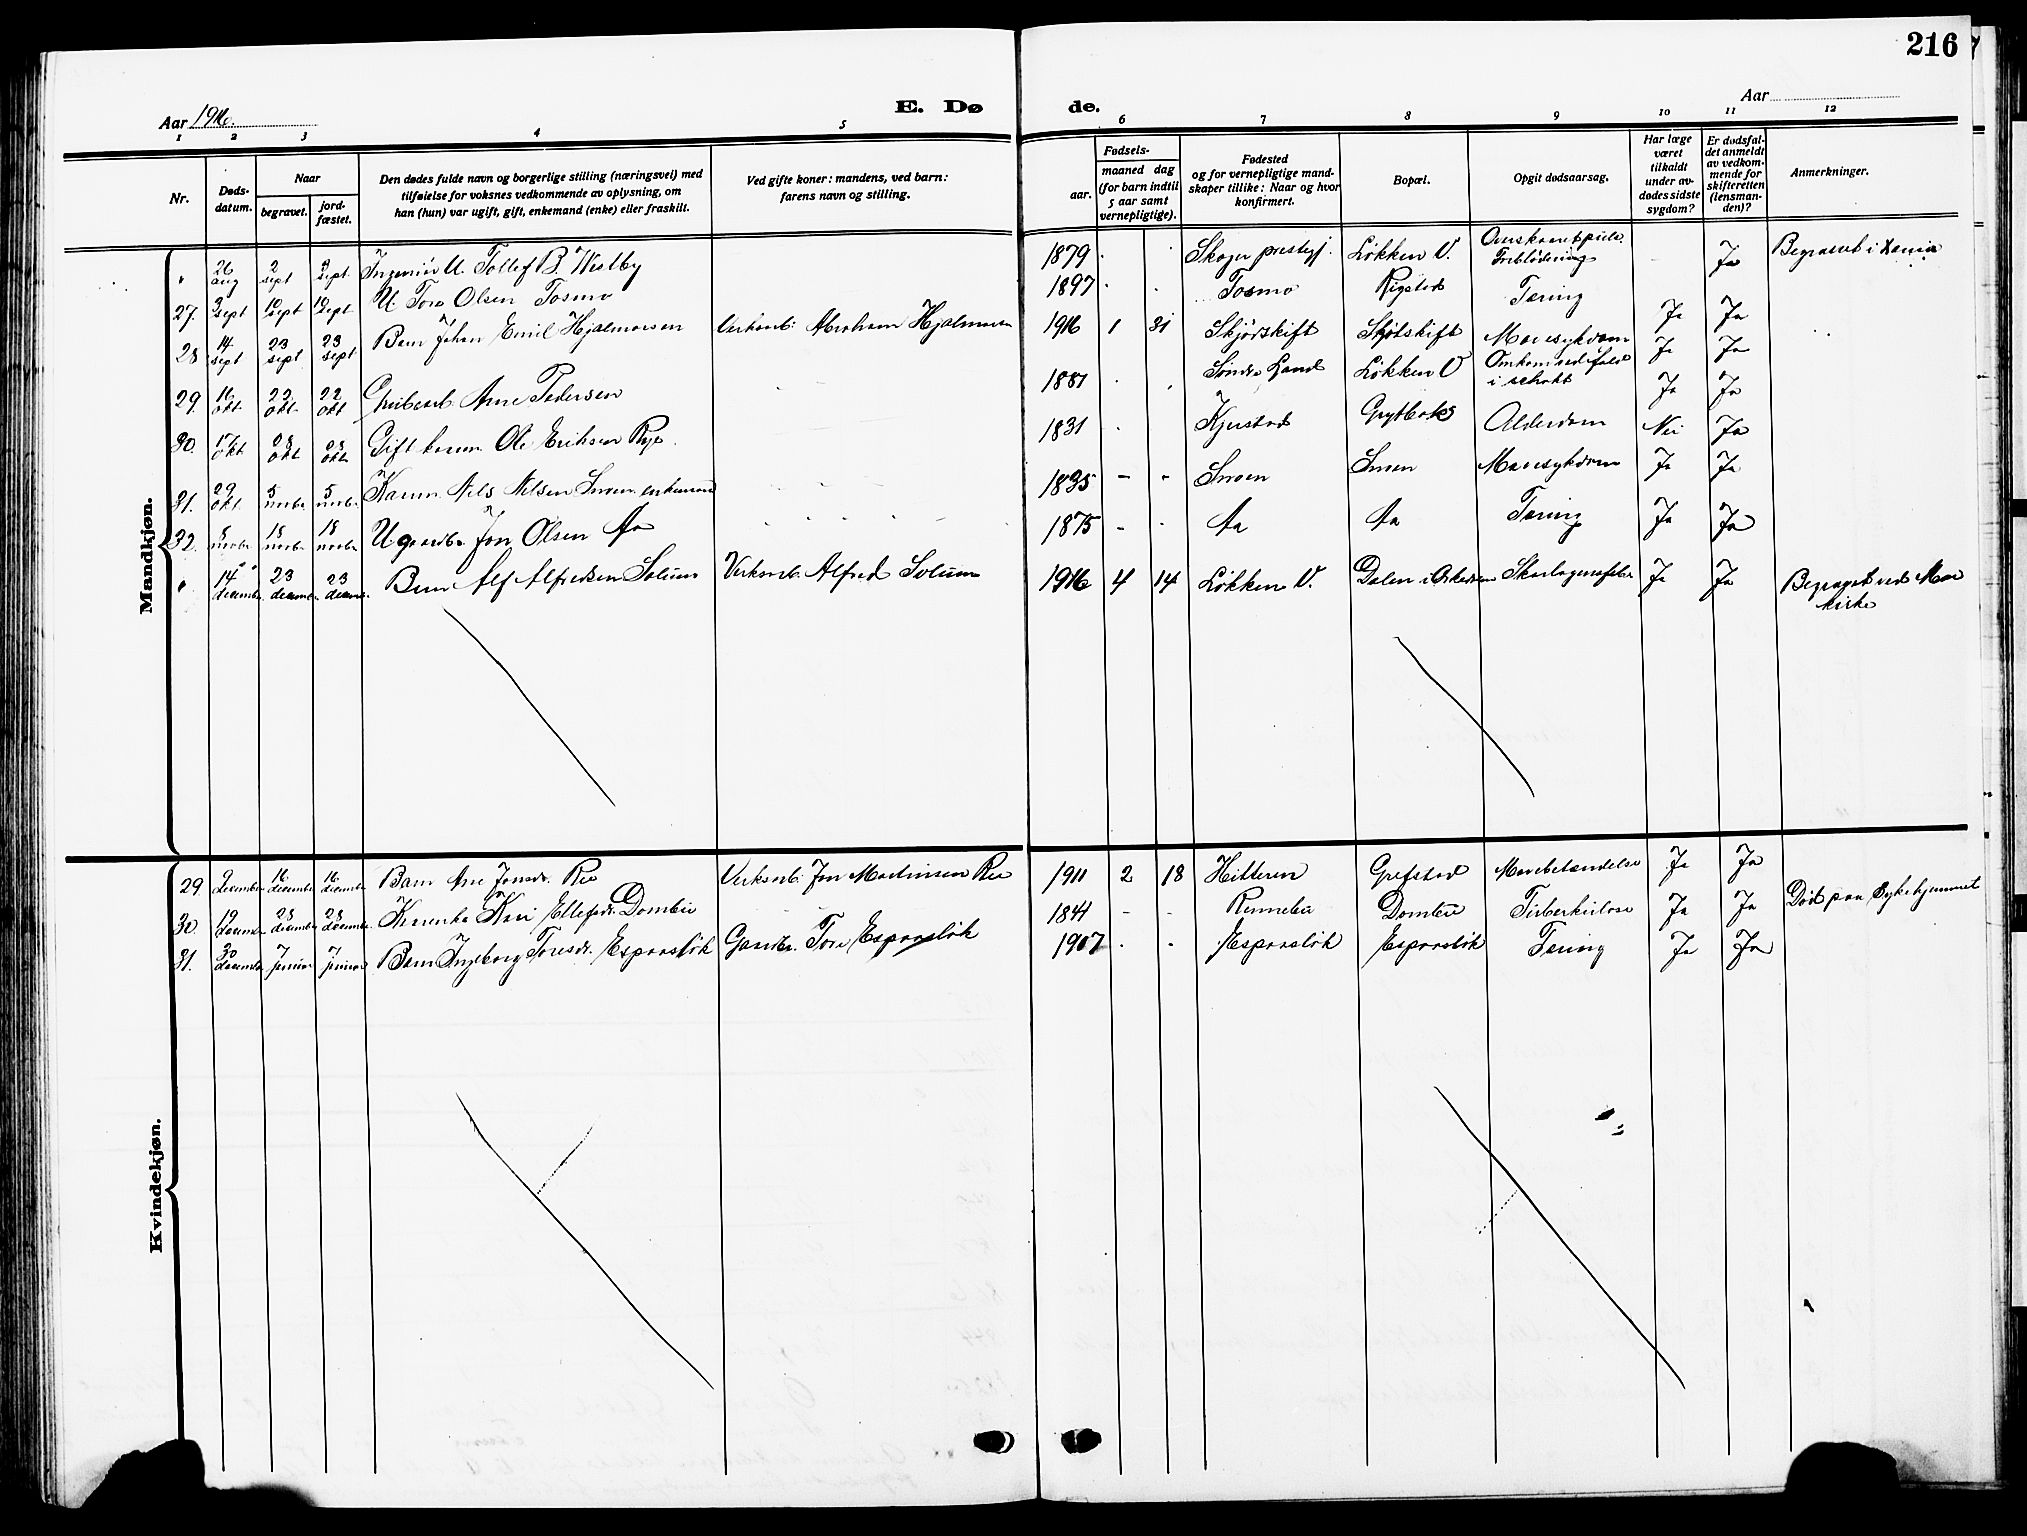 216
Aar 1916.
E. Dø
de.
Aar
1 2 3 4 5 6 7 8 9 10 11 12
Nr.
Døds-
datum.
Naar
begravet.
jord-
fæstet.
Den dødes fulde navn og borgerlige stilling (næringsvei) med
tilføielse for voksnes vedkommende av oplysning, om
han (hun) var ugift, gift, enkemand (enke) eller fraskilt.
Ved gifte koner: mandens, ved barn:
farens navn og stilling.
Fødsels-
aar.
maaned dag
(for barn indtil
5 aar samt
vernepligtige).
Fødested
og for vernepligtige mand-
skaper tillike: Naar og hvor
konfirmert.
Bopæl.
Opgit dødsaarsag.
Har læge
været
tilkaldt
under av-
dødes sidste
sygdom?
Er dødsfal-
det anmeldt
av vedkom-
mende for
skifteretten
(lensman-
den)?
Anmerkninger.
Mandkjøn.
" 26 aug 2 sept 2 sept Ingeniör U. Tollef B. Westby 1879 Skoger prestegj. Løkken V. Forblödning Ja Begravet i Xania
27. 3 sept 10 sept 10 sept U. Tore Olsen Tosmo 1897 Tosmo Rigstad Tæring Ja Ja
28 14 sept 23 sept 23 sept Barn Johan Emil Hjalmarsen Verksarb: Abraham Hjalmarsen 1916 1 31 Skjödskift Skjötskift Mavesykdom Ja Ja
29. 16 okt. 22 okt. 22 okt Grubearb. Arne Pedersen 1881 Söndre Land Løkken V Omkom ved fald i schakt Ja Ja
30. 17 okt 23 okt 23 okt Gift kaarm. Ole Eriksen Rye 1831 Kjerstad Grytbaks Alderdom Nei Ja
31. 29 okt. 5 novbr. 5 novbr. Kaarm. Nils Nilsen Smoen enkemand 1835 - - Smoen Smoen Mavesykdom Ja Ja
32. 8 novbr 18 novbr 18 novbr U gaardbr. Jon Olsen Aa 1875 - - Aa Aa Tæring Ja Ja
" 14 december 23 decembr. 23 decembr. Barn Alf Alfredsen Solum Verksarb. Alfred Solum 1916 4 14 Løkken V. Dalen i Orkedalen Skarlagensfeber Ja Ja Begravet ved Moe
kirke
Kvindekjøn.
29. 9 december 16 december 16 december Barn Ane Jonsdr. Ree Verksarb. Jon Martinsen Ree 1911 2 18 Hitteren Grefstad Mavebetændelse Ja Ja
30. 19 decembr 28 decembr 28 decembr. Kaarenke Kari Ellefsdr. Dombu 1844 - - Rennebu Dombu Tuberkulose Ja Ja Död paa Sykehjemmet
31. 30 decembr 7 januar 7 januar Barn Ingeborg Toresdr. Espaasløk Gaardbr. Tore Espaasløk 1907 Espaasløk Espaasløk Tæring Ja Ja